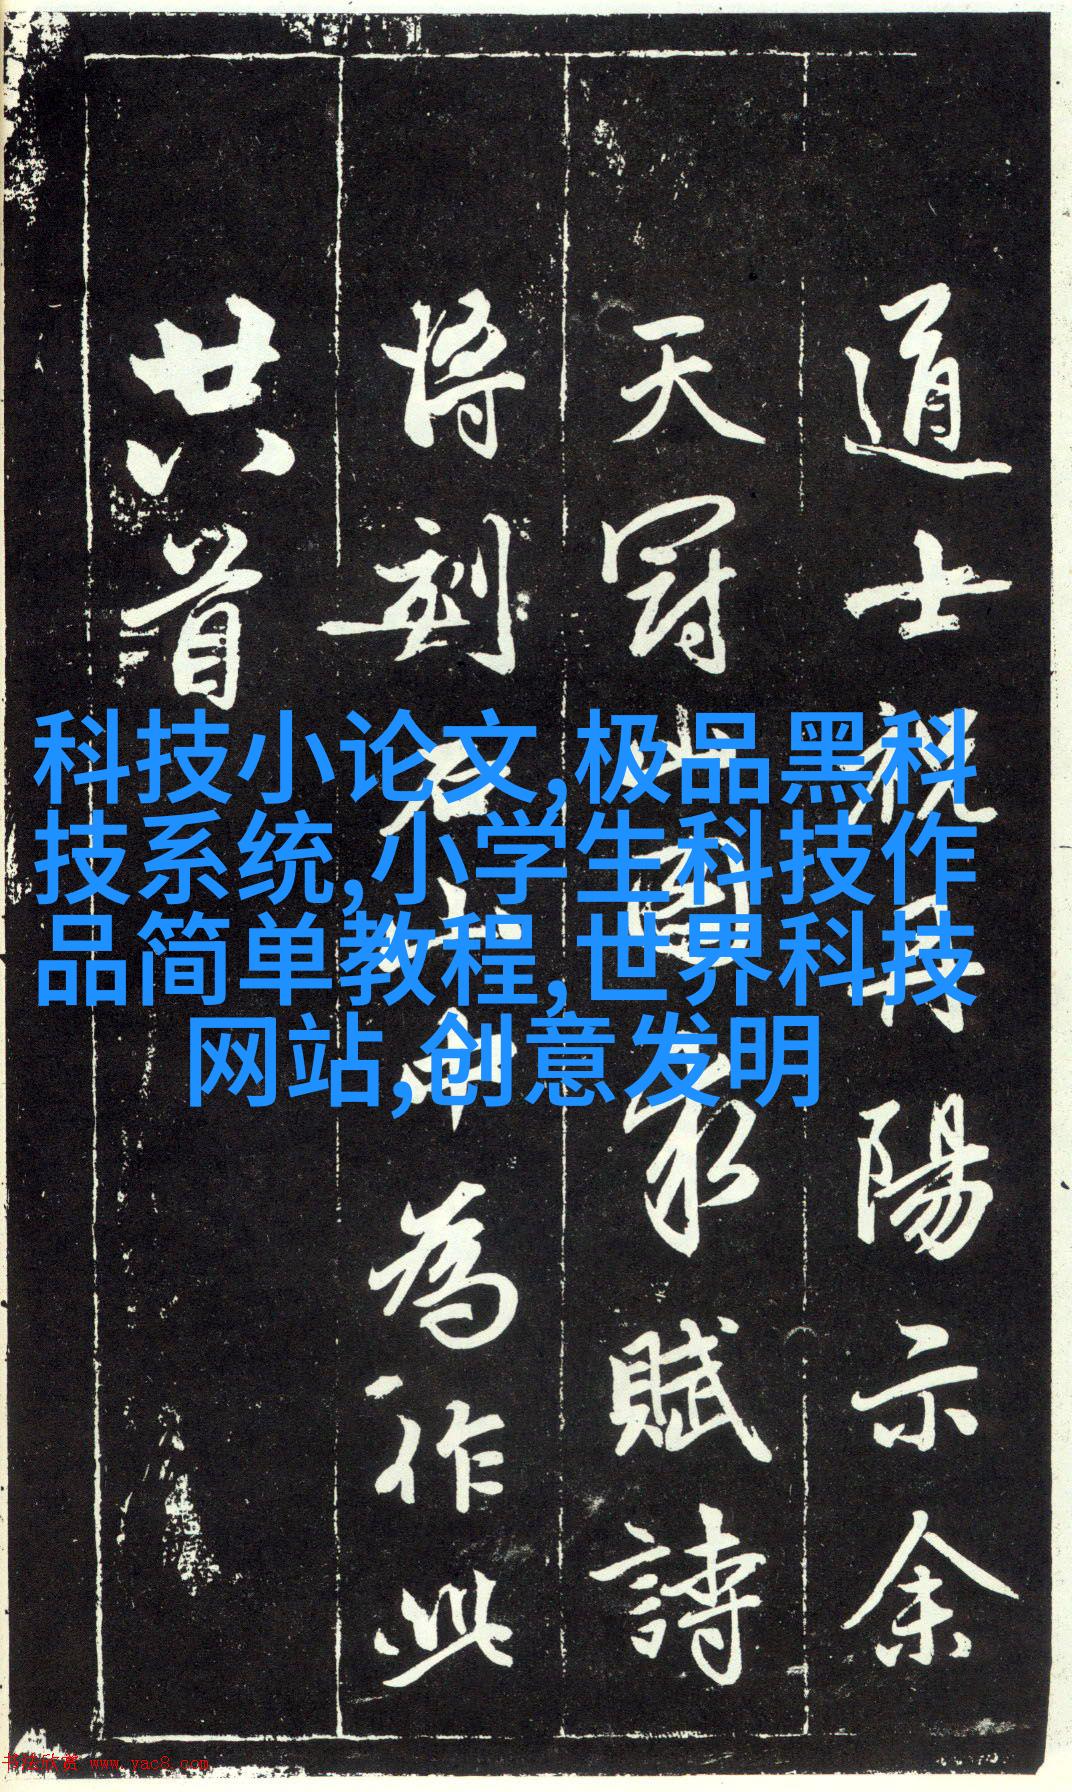 道士祝丹陽示余
天冠山圖求賦詩
將刻石山中為作此
廿八首
科技小论文,极品黑科
技系统,小学生科技作
品简单教程,世界科技
网站,创意发明
书法欣赏 www.yac8.com